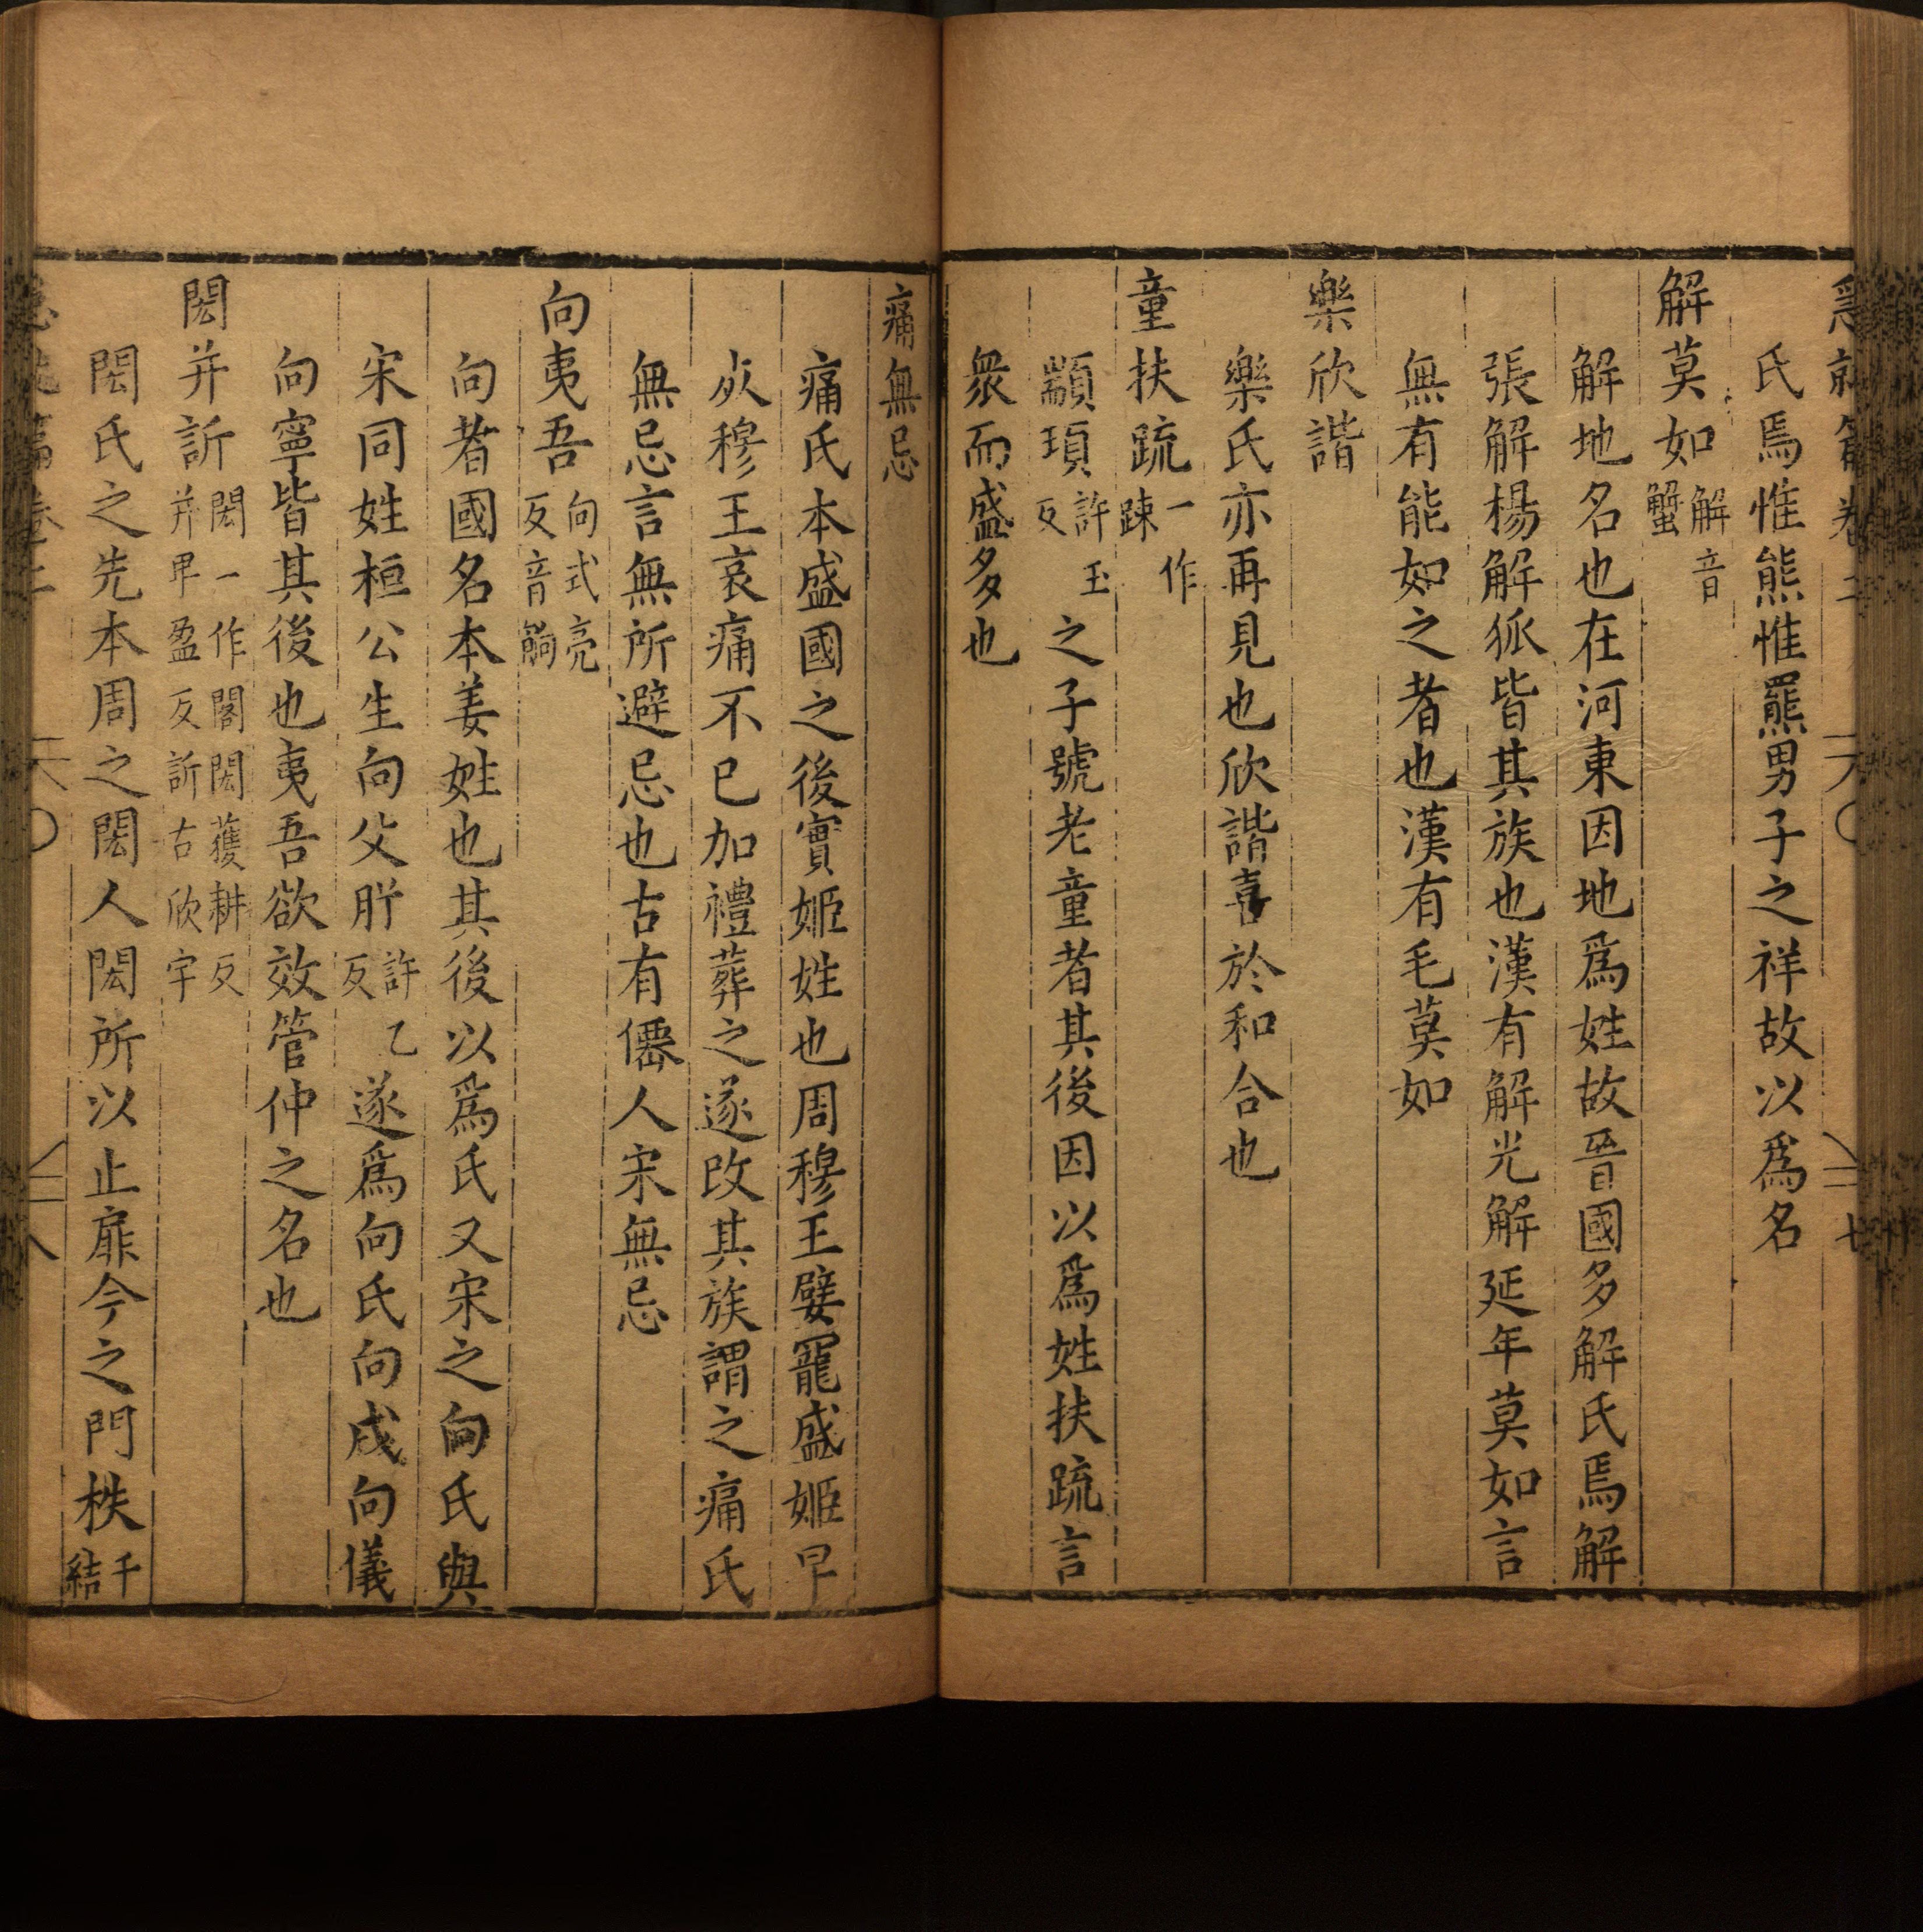 氏焉惟熊惟羆男子之祥故以爲名
解莫如解音蟹
解地名也在河東因地爲姓故晉國多解氏焉解
張解楊解狐皆其族也漢有解光解延年莫如言
無有能如之者也漢有毛莫如
樂欣諧
樂氏亦再見也欣諧喜於和合也
童扶疏一作踈
顓頊許玉反之子號老童者其後因以爲姓扶疏言
衆而盛多也
痛無忌
痛氏本盛國之後實姬姓也周穆王嬖寵盛姬早
死穆王哀痛不已加禮葬之遂改其族謂之痛氏
無忌言無所避忌也古有僊人宋無忌
向夷吾向式亮反音餉
向者國名本姜姓也其後以爲氏又宋之向氏與
宋同姓桓公生向父肸許乙反遂爲向氏向戌向儀
向寧皆其後也夷吾欲效管仲之名也
閎并訢閎一作閣閎獲耕反并卑盈反訢古欣字
閎氏之先本周之閎人閎所以止扉今之門柣千結